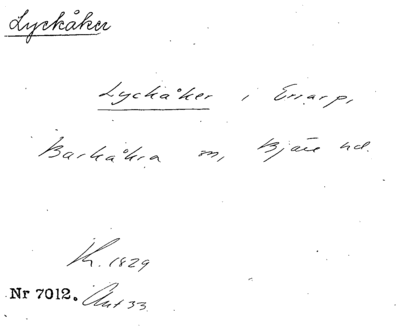 Lyckåker
Lyckåker i Errarp,
Barkåkra sn, Bjäre hd.
Kr. 1829
Nr 7012. Ant 33.